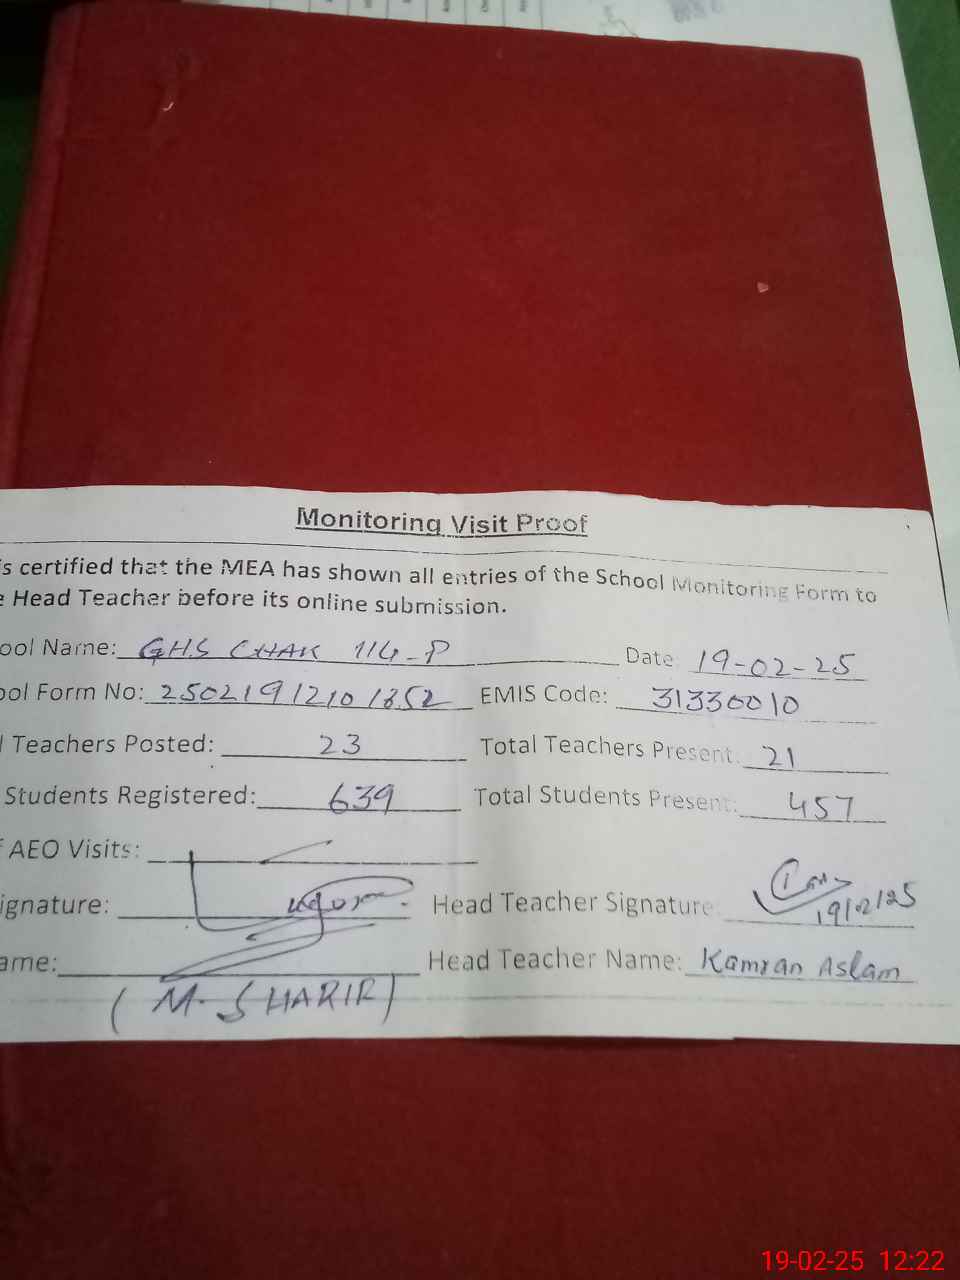 Monitoring Visit Proof
s certified that the MEA has shown all entries of the School Monitoring Form to
e Head Teacher before its online submission.
ool Name: GHS CHAK 114-P Date 19-02-25
ool Form No: 25021912101852 EMIS Code: 31330010
l Teachers Posted: 23 Total Teachers Present: 21
Students Registered: 639 Total Students Present: 457
f AEO Visits:
ignature: Head Teacher Signature: 19/2/25
ame: Head Teacher Name: Kamran Aslam
(M. SHARIR)
19-02-25 12:22